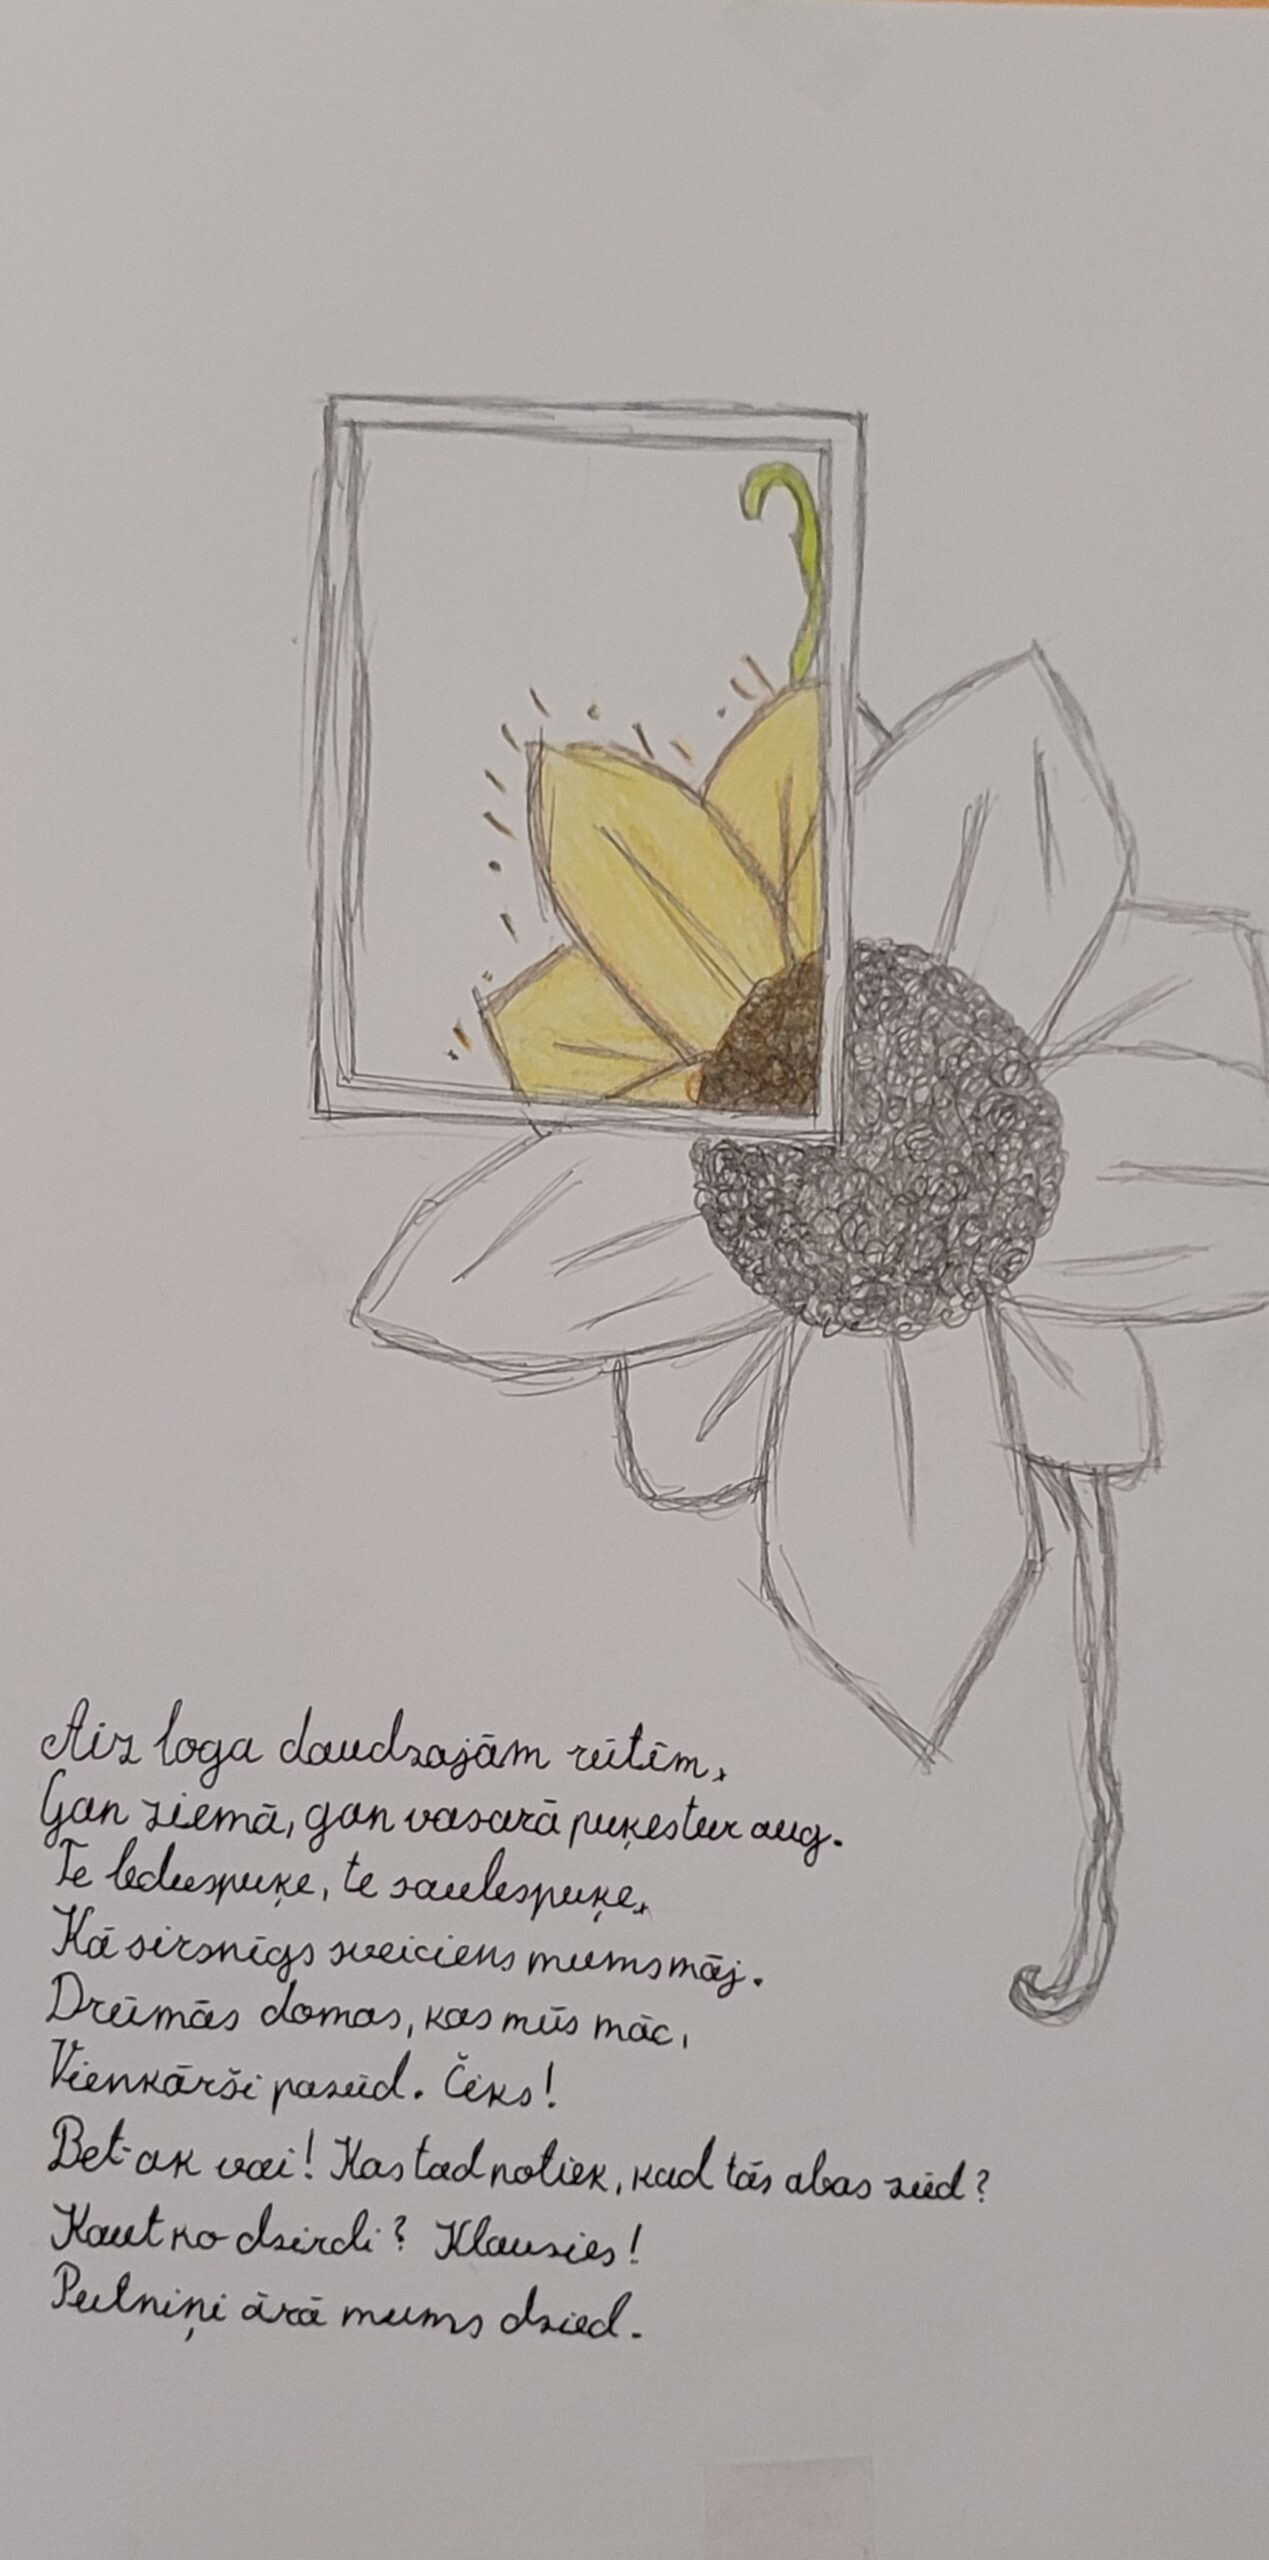 Aiz loga daudzajām rūtīm,
Gan ziemā, gan vasarā puķes tur aug.
Te leduspuķe, te saulespuķe,
Kā sirsnīgs sveiciens mums māj.
Drūmās domas, kas mūs māc,
Vienkārši pazūd. Čiks!
Bet ak vai! Kas tad notiek, kad tās abas zūd?
Kaut ko dzirdi? Klausies!
Putniņi ārā mums dzied.